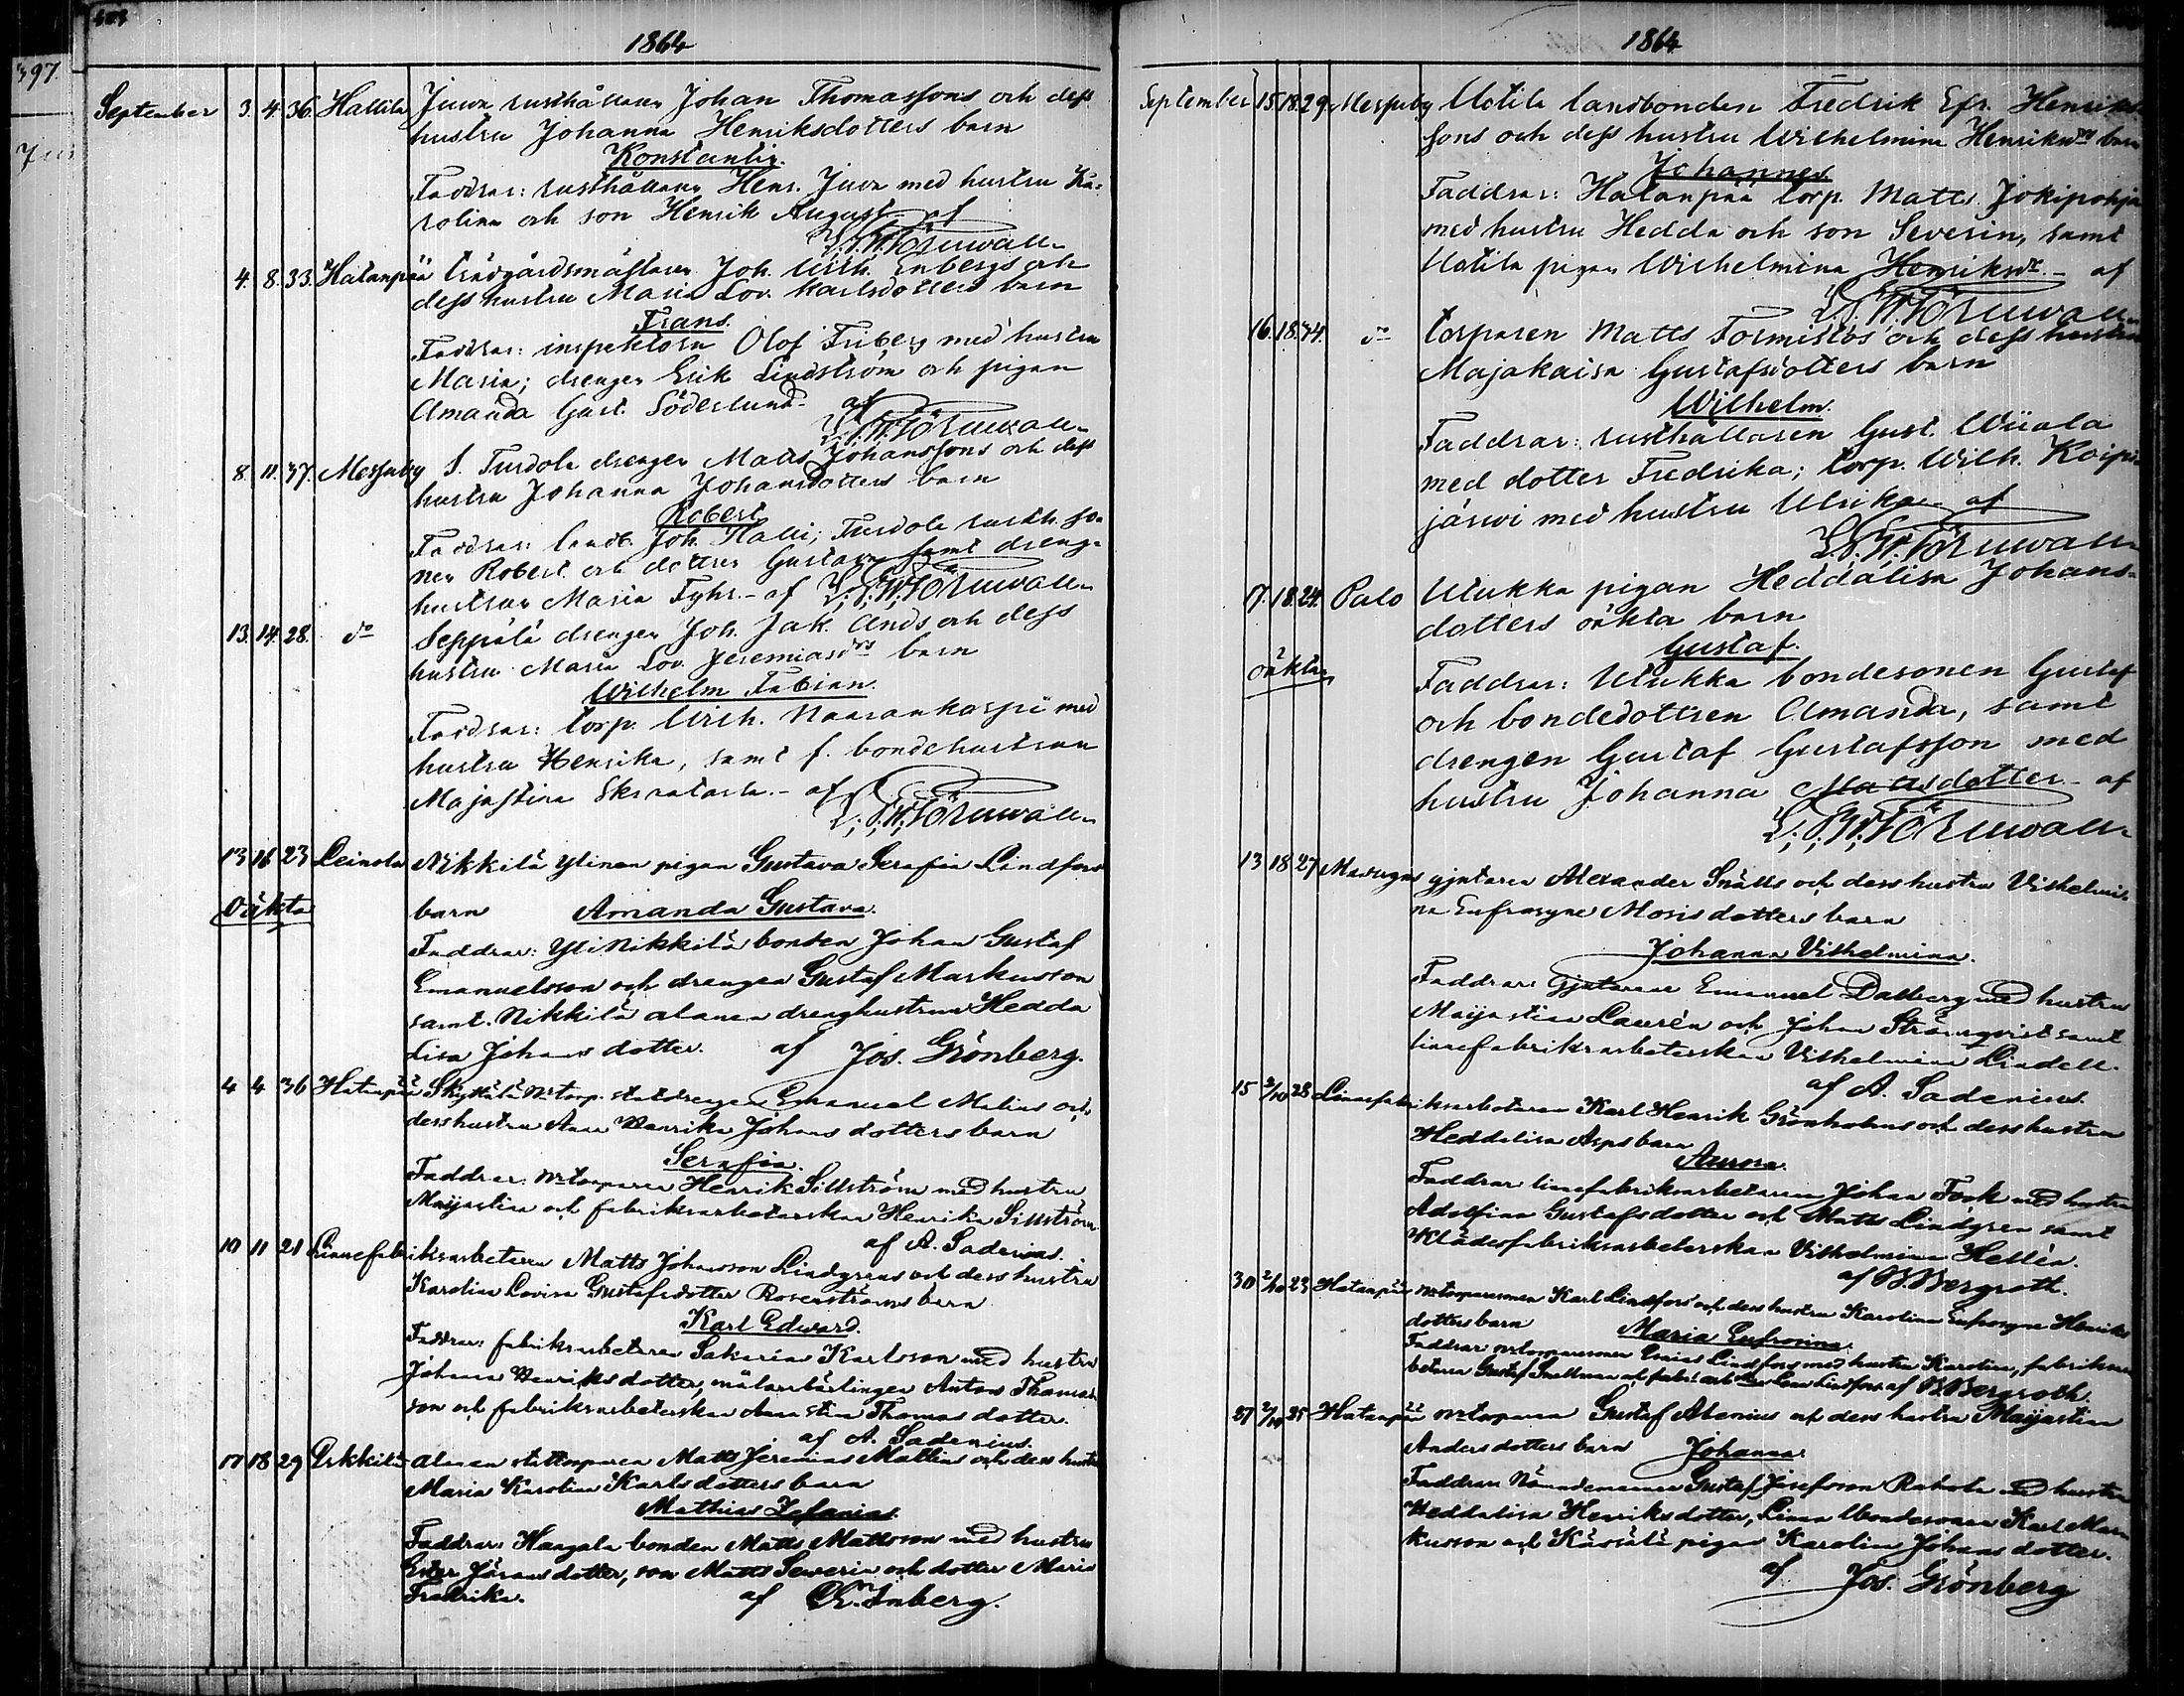 1864
September 3. 4. 36. Hallila Juva rusthållaren Johan Thomassons och dess
hustru Johanna Henriksdotters barn
Konstantin.
Faddrar: rusthållaren Henr. Juva med hustru Ka-
rolina och son Henrik August af
4. 8. 33. Hatanpää trädgårdsmästaren Joh. Wilh. Enbergs och
dess hustru Maria Lov. Karlsdotters barn
Frans.
Faddrar: inspektorn Olof Friberg med hustru
Maria; drengen Erik Lindström och pigan
Amanda Gust. Söderlund af
8. 11. 37. Messuby S. Turdola drengen Matts Johanssons och dess
hustru Johanna Johansdotters barn
Robert
Faddrar: landb. Joh. Halli; Turdola rusth. so-
nen Robert och dottren Gustava samt dreng-
hustrun Maria Fyhr. af
13. 14. 28. do Seppälä drengen Joh. Jak. Ands och dess
hustru Maria Lov. Jeremiasdrs barn
Wilhelm Fabian.
Faddrar: torp. Wilh. med
hustru Henrika, samt f. bondehustrun
Majastina Skraatarla. af
13 16 23 Leinola Nikkilä Ylinen pigan Gustava Serafia Lindfors
Oäkta barn Amanda Gustava.
Faddrar: Yli Nikkilä bonden Johan Gustaf
Emanuelsson och drengen Gustaf Markusson
samt Nikkilä alanen dreng hustrun Hedda
Lisa Johans dotter. af Jos. Grönberg.
4 4 36 Hatanpää Skyttälä torp. statdrengen Emanuel Malins och
dess hustru Anna Henrika Johans dotters barn
Serafia.
Faddrar: Henrik Sillström med hustru
Majastina och fabriksarbeterskan Henrika Sillström
af A. Sadenius.
10 11 21 Linnefabriksarbetaren Matts Johansson Lindgrens och dess hustru
Karolina Lovisa Gustafsdotter Rosenströms barn
Karl Edward.
Faddrar: fabriksarbetaren Sakarias Karlsson med hustru
Johanna Henriks dotter, målarelärlingen Anton Thomas-
son och fabriksarbeterskan Anna Stina Thomas dotter.
af A. Sadenius.
17 18 29 Pirkkilä alanen Matts Jeremias Mattias och dess hustru
Maria Karolina Karls dotters barn
Mathias Zefanias.
Faddrar: Haagala bonden Matts Mattsson med hustru
Ester Jörans dotter, son Matts Severin och dotter Maria
Fredrika. af
1864
September 15. 18. 29. Messuby Uotila landbonden Fredrik Efr. Henriks-
sons och dess hustru Wilhelmina Henriksdrs barn
Johannes
Faddrar: Hatanpää torp. Matts Jokipohja
med hustru Hedda och son Severin, samt
Uotila pigan Wilhelmina Henriksdr. af
16. 18. 44. do torparen Matts Tormistos och dess hustru
Majakaisa Gustafsdotters barn
Wilhelm.
Faddrar: rusthållaren Gust. Wiiala
med dotter Fredrika; torp. Wilh. Koipi-
järvi med hustru Ulrika af
17. 18. 24. Palo Ulukka pigan Heddalisa Johans-
dotters oäkta barn
Gustaf.
oäkta
Faddrar: Ulukka bondesonen Gustaf
och bondedottren Amanda, samt
drengen Gustaf Gustafsson med
hustru Johanna Mattsdotter af
13 18 27 gjutaren Alexander Snälls och dess hustru Vilhelmi-
na Eufrosyne Mosisdotters barn
Johanna Vilhelmina.
Faddrar: Gjutaren Emanuel Dalberg med hustru
Maijastina Laurén och Johan Strömqvist samt
linnefabriksarbeterskan Vilhelmina Lindell.
af A. Sadenius.
15 2/10 28 Linnefabriksarbetaren Karl Henrik Grönholms och dess hustru
Heddalisa Asps barn
Aurora.
Faddrar: linnefabriksarbetaren Johan Fock med hustru
Adolfina Gustafsdotter och Matts Lindgren samt
Klädesfabriksarbeterskan Vilhelmina Hellén.
af Bergroth.
30 2/10 23 Hatanpää Karl Lindfors och dess hustru Karolina Eufrosyne Henriks
dotters barn Maria Eufrosina.
Faddrar: Esaias Lindfors med hustru Karolina, fabriksar-
betaren Gustaf Snellman och Lindfors. af Bergroth.
27 2/10 35 Hatanpää Gustaf Alenius och dess hustru Maijastina
Anders dotters barn Johanna.
Faddrar: Nämndemannen Gustaf Josefsson Rahola med hustru
Heddalisa Henriksdotter, bondesonen Karl Mar-
kusson och pigan Karolina Johans dotter.
af Jos. Grönberg
397.